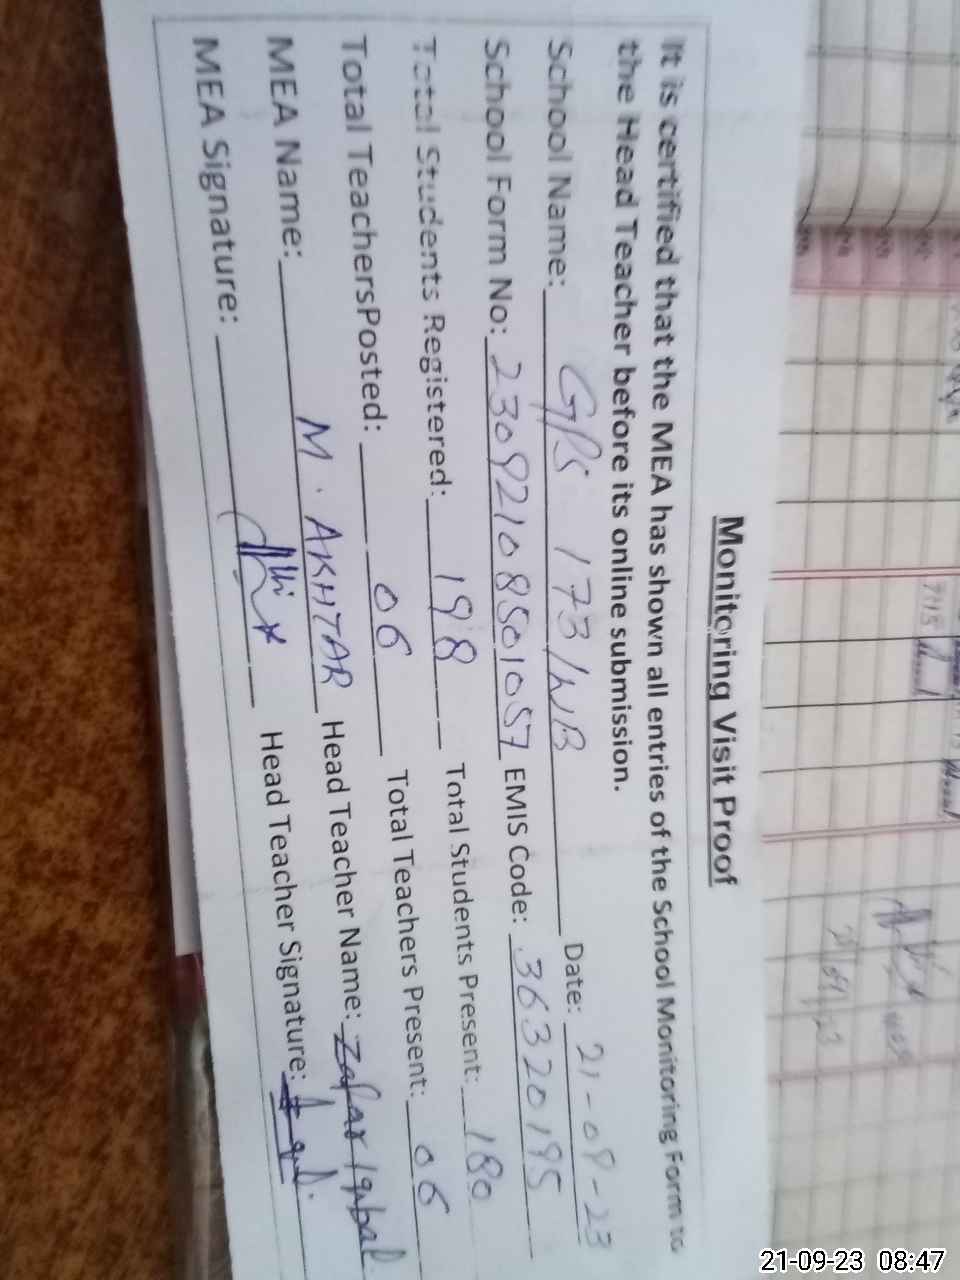 Monitoring Visit Proof
It is certified that the MEA has shown all entries of the School Monitoring Form to
the Head Teacher before its online submission.
School Name: GPS 173/WB Date: 21-09-23
School Form No: 23092108501057 EMIS Code: 36320195
Total Students Registered: 198 Total Students Present: 180
Total TeachersPosted: 06 Total Teachers Present: 06
MEA Name: M. AKHTAR Head Teacher Name: Zafar Iqbal
MEA Signature: Head Teacher Signature:
21-09-23 08:47